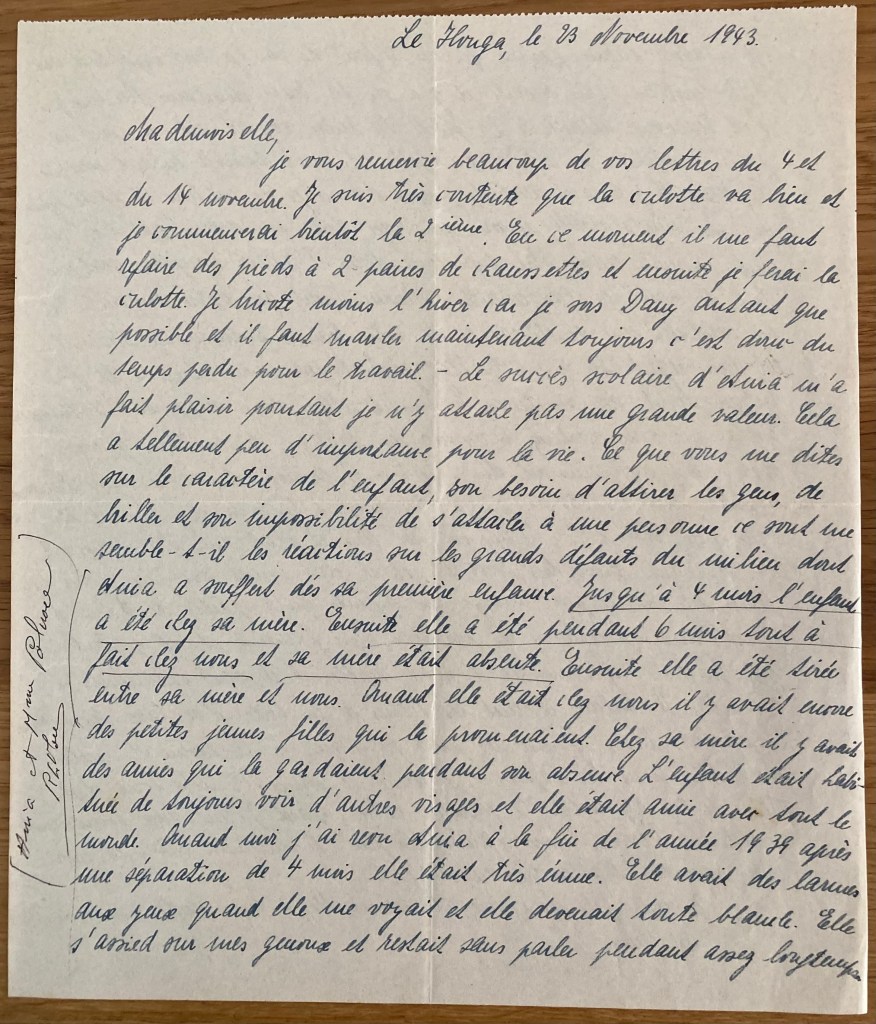 Le Houga, le 23 Novembre 1943.
Mademoiselle,
je vous remercie beaucoup de vos lettres du 4 et
du 14 novembre. Je suis très contente que la culotte va bien et
je commencerai bientôt la 2ième. En ce moment il me faut
refaire des pieds à 2 paires de chaussettes et ensuite je ferai la
culotte. Je tricote moins l'hiver car je sors Dany autant que
possible et il faut marcher maintenant toujours c'est donc du
temps perdu pour le travail. - Le succès scolaire d'Ania m'a
fait plaisir pourtant je n'y attache pas une grande valeur. Cela
a tellement peu d'importance pour la vie. Ce que vous me dites
sur le caractère de l'enfant, son besoin d'attirer les gens, de
briller et son impossibilité de s'attacher à une personne ce sont me
semble-t-il les réactions sur les grands défauts du milieu dont
Ania a souffert dès sa première enfance. Jusqu'à 4 mois l'enfant
a été chez sa mère. Ensuite elle a été pendant 6 mois tout à
fait chez nous et sa mère était absente. Ensuite elle a été tirée
entre sa mère et nous. Quand elle était chez nous il y avait encore
des petites jeunes filles qui la promenaient. Chez sa mère il y avait
des amies qui la gardaient pendant son absence. L'enfant était habi-
tuée de toujours voir d'autres visages et elle était amie avec tout le
monde. Quand moi j'ai revu Ania à la fin de l'année 1939 après
une séparation de 4 mois elle était très émue. Elle avait des larmes
aux yeux quand elle me voyait et elle devenait toute blanche. Elle
s'assied sur mes genoux et restait sans parler pendant assez longtemps
Ania et Mme